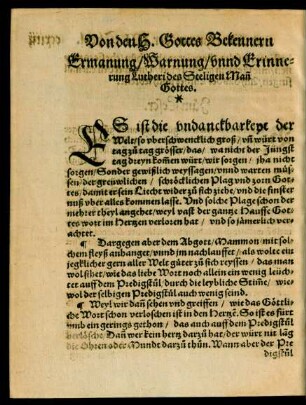 Von den H. Gottes Bekennern
Ermanung/Warnung/vnnd Erinne-
rung Lutheri des Seeligen Mañ
Gottes.
*
ES ist die vndanckbarkeyt der
Welt/so vberschwencklich groß/vñ würt von
tag zů tag grösser/das/wa nicht der Jüngst
tag dreyn kom̃en würt/wir sorgen/jha nicht
sorgen/Sonder gewißlich weyssagen/vnnd warten müs-
sen/der grewlichen/schröcklichen Plag vnd zorn Got-
tes/damit er sein Liecht wider zů sich ziehe/vnd die finster
nuß vber alles kommen lasse. Vnd solche Plag schon der
mehrer theyl angehet/weyl vast der gantze Hauffe Got
tes wort im Hertzen verloren hat/vnd so jämerlich ver-
achtet.
¶ Dargegen aber dem Abgott/Mammon mit sol-
chem fleyß anhanget/vnnd jm nachlauffet/als wolte ein
jegklicher gern aller Welt güter zů sich reyssen/das man
wol sihet/wie das liebe Wort noch allein ein wenig leüch-
tet auff dem Predigstůl/durch die leybliche Stim̃e/wie-
wol der selbigen Predigstül auch wenig seind.
¶ Weyl wir dañ sehen vnd greiffen/wie das Göttli-
che Wort schon verloschen ist in den Hertzē. So ist es fürt
umb ein gerings gethon/das auch auff dem Predigstůl
verlösche. Dañ wer kein hertz darzů hat/der würt nit lãg
die Ohren oder Mundt darzů thůn. Wann aber der Pre
digstůl